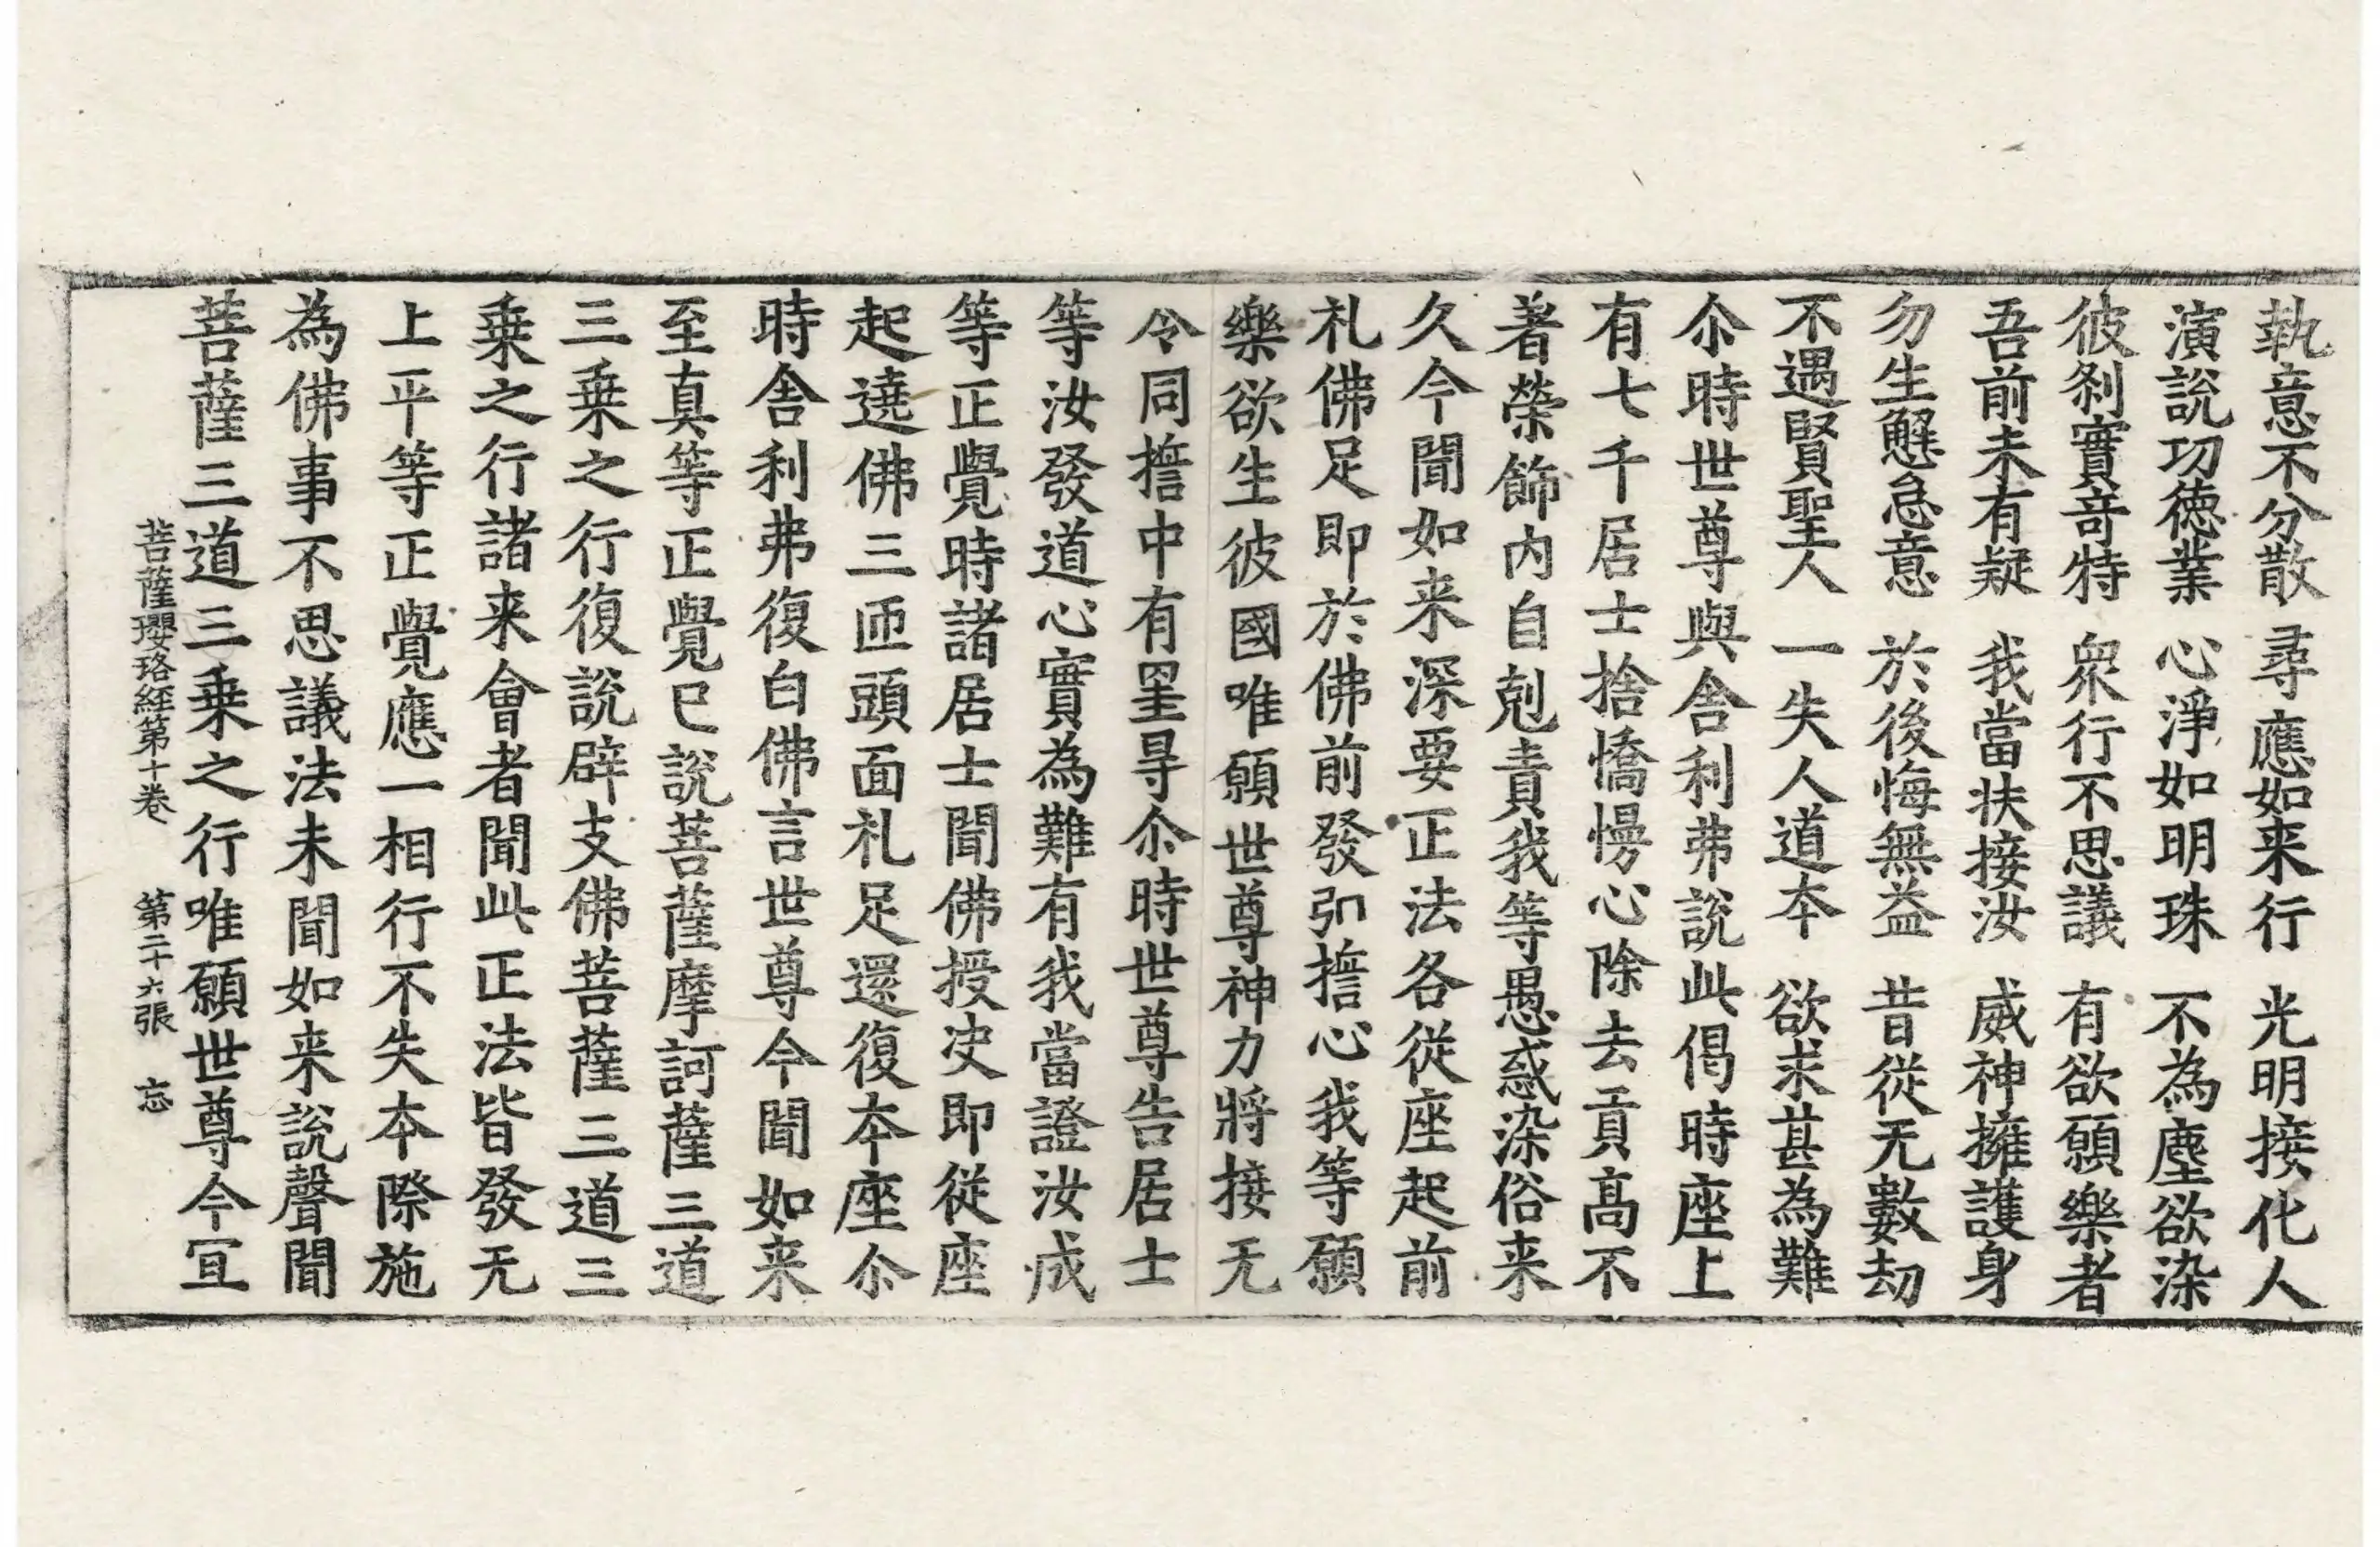 執意不分散 尋應如来行 光明接化人
演說功德業 心淨如明珠 不為塵欲染
彼剎實奇特 衆行不思議 有欲願樂者
吾前未有疑 我當扶接汝 威神擁護身
勿生懈怠意 於後悔無益 昔從无數劫
不遇賢聖人 一失人道本 欲求甚為難
尒時世尊與舎利弗說此偈時座上
有七千居士捨憍慢心除去貢高不
著榮飾内自剋責我等愚惑染俗来
久今聞如来深要正法各從座起前
礼佛足即於佛前發弘誓心我等願
樂欲生彼國唯願世尊神力將接无
令同誓中有罣㝵尒時世尊告居士
等汝發道心實為難有我當證汝成
等正覺時諸居士聞佛授决即從座
起遶佛三匝頭面礼足還復本座尒
時舎利弗復白佛言世尊今聞如来
至真等正覺已說菩薩摩訶薩三道
三乗之行復說辟支佛菩薩三道三
乗之行諸来會者聞此正法皆發无
上平等正覺應一相行不失本際施
為佛事不思議法未聞如来說聲聞
菩薩三道三乗之行唯願世尊今冝
菩薩瓔珞經第十卷 第二十六張 忘